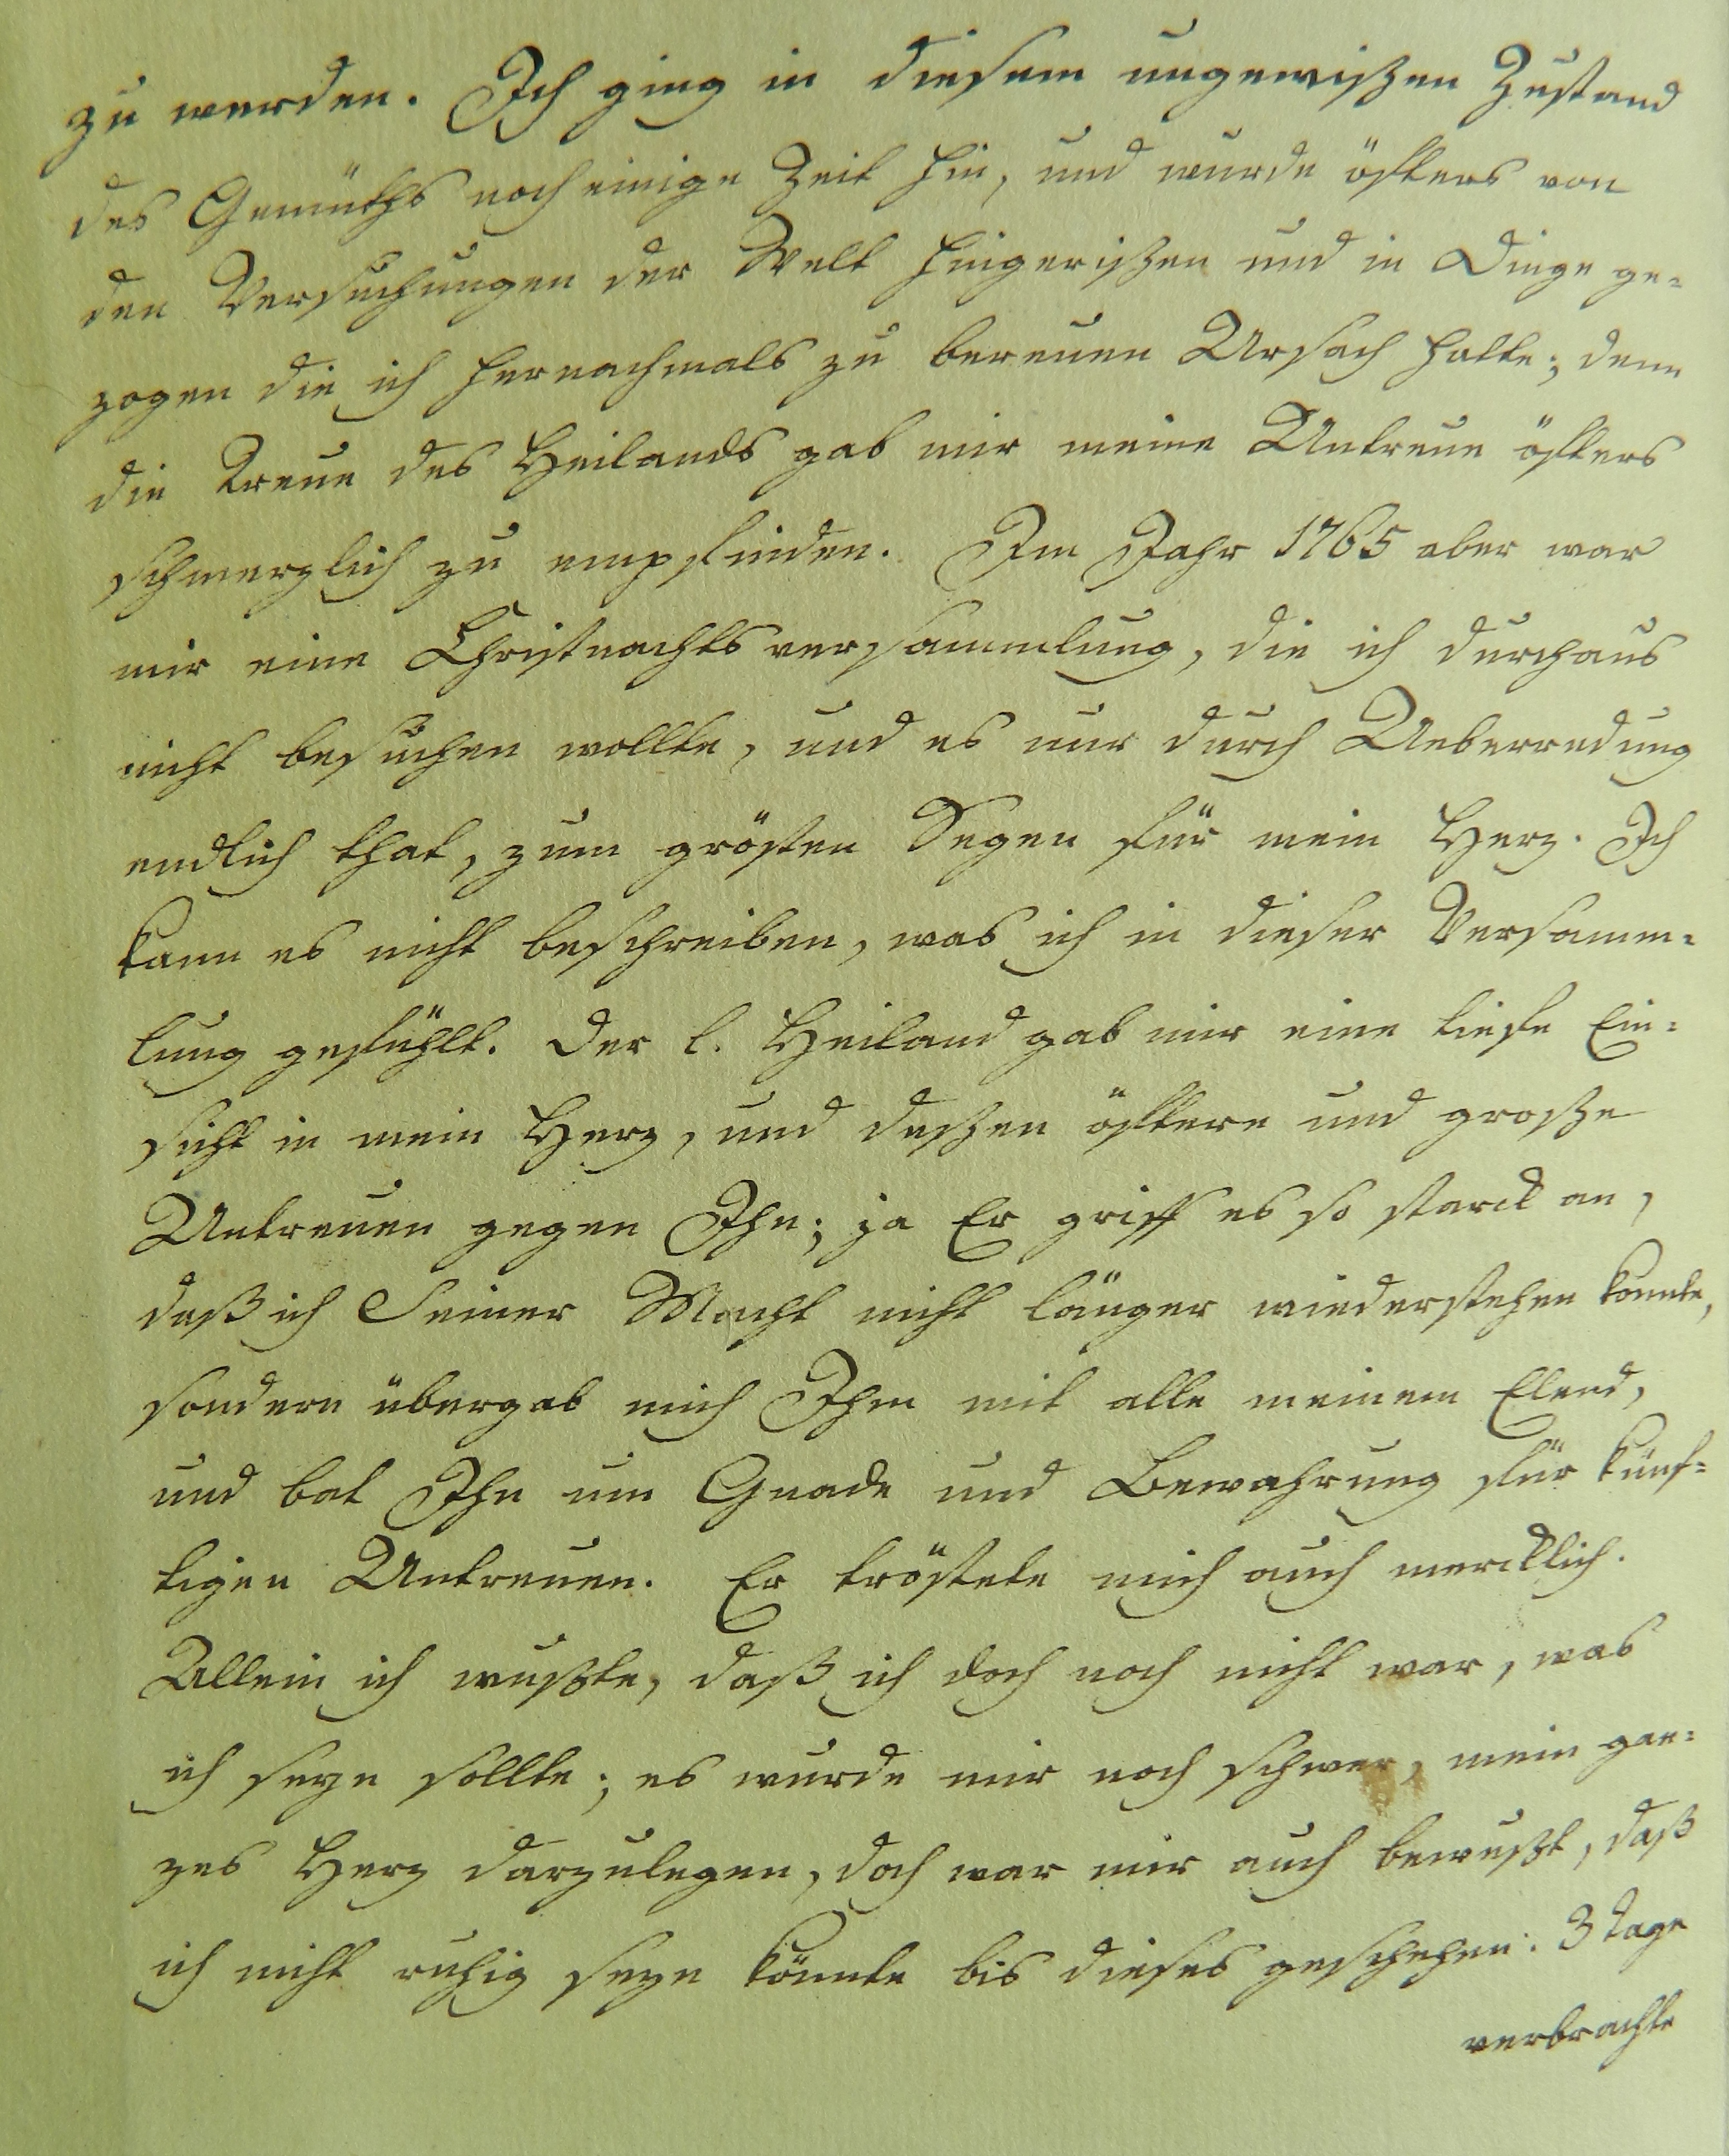 zu werden. Ich ging in diesem ungewißen Zustand
des Gemüths noch einige Zeit hin, und wurde öfters von
den Versuchungen der Welt hingerißen und in Dinge ge-
zogen die ich hernachmals zu bereuen Ursach hatte; denn
die Treue des Heilands gab mir meine Untreue öfters
schmerzlich zu empfinden. Im Jahr 1765 aber war
mir eine Christnachtsversammlung, die ich durchaus
nicht besuchen wollte, und es nur durch Ueberredung
endlich that, zum grösten Segen für mein Herz. Ich
kann es nicht beschreiben, was ich in dieser Versamm-
lung gefühlt. Der l. Heiland gab mir eine tiefe Ein-
sicht in mein Herz, und deßen öftere und große
Untreuen gegen Ihn; ja Er griff es so starck an,
daß ich Seiner Macht nicht länger wiederstehen konnte,
sondern übergab mich Ihm mit alle meinem Elend,
und bat Ihn um Gnade und Bewahrung für künf-
tigen Untreuen. Er tröstete mich auch mercklich.
Allein ich wußte, daß ich doch noch nicht war, was
ich seyn sollte; es wurde mir noch schwer, mein gan-
zes Herz darzulegen, doch war mir auch bewußt, daß
ich nicht ruhig seyn könnte bis dieses geschehen. 3 Tage
verbrachte